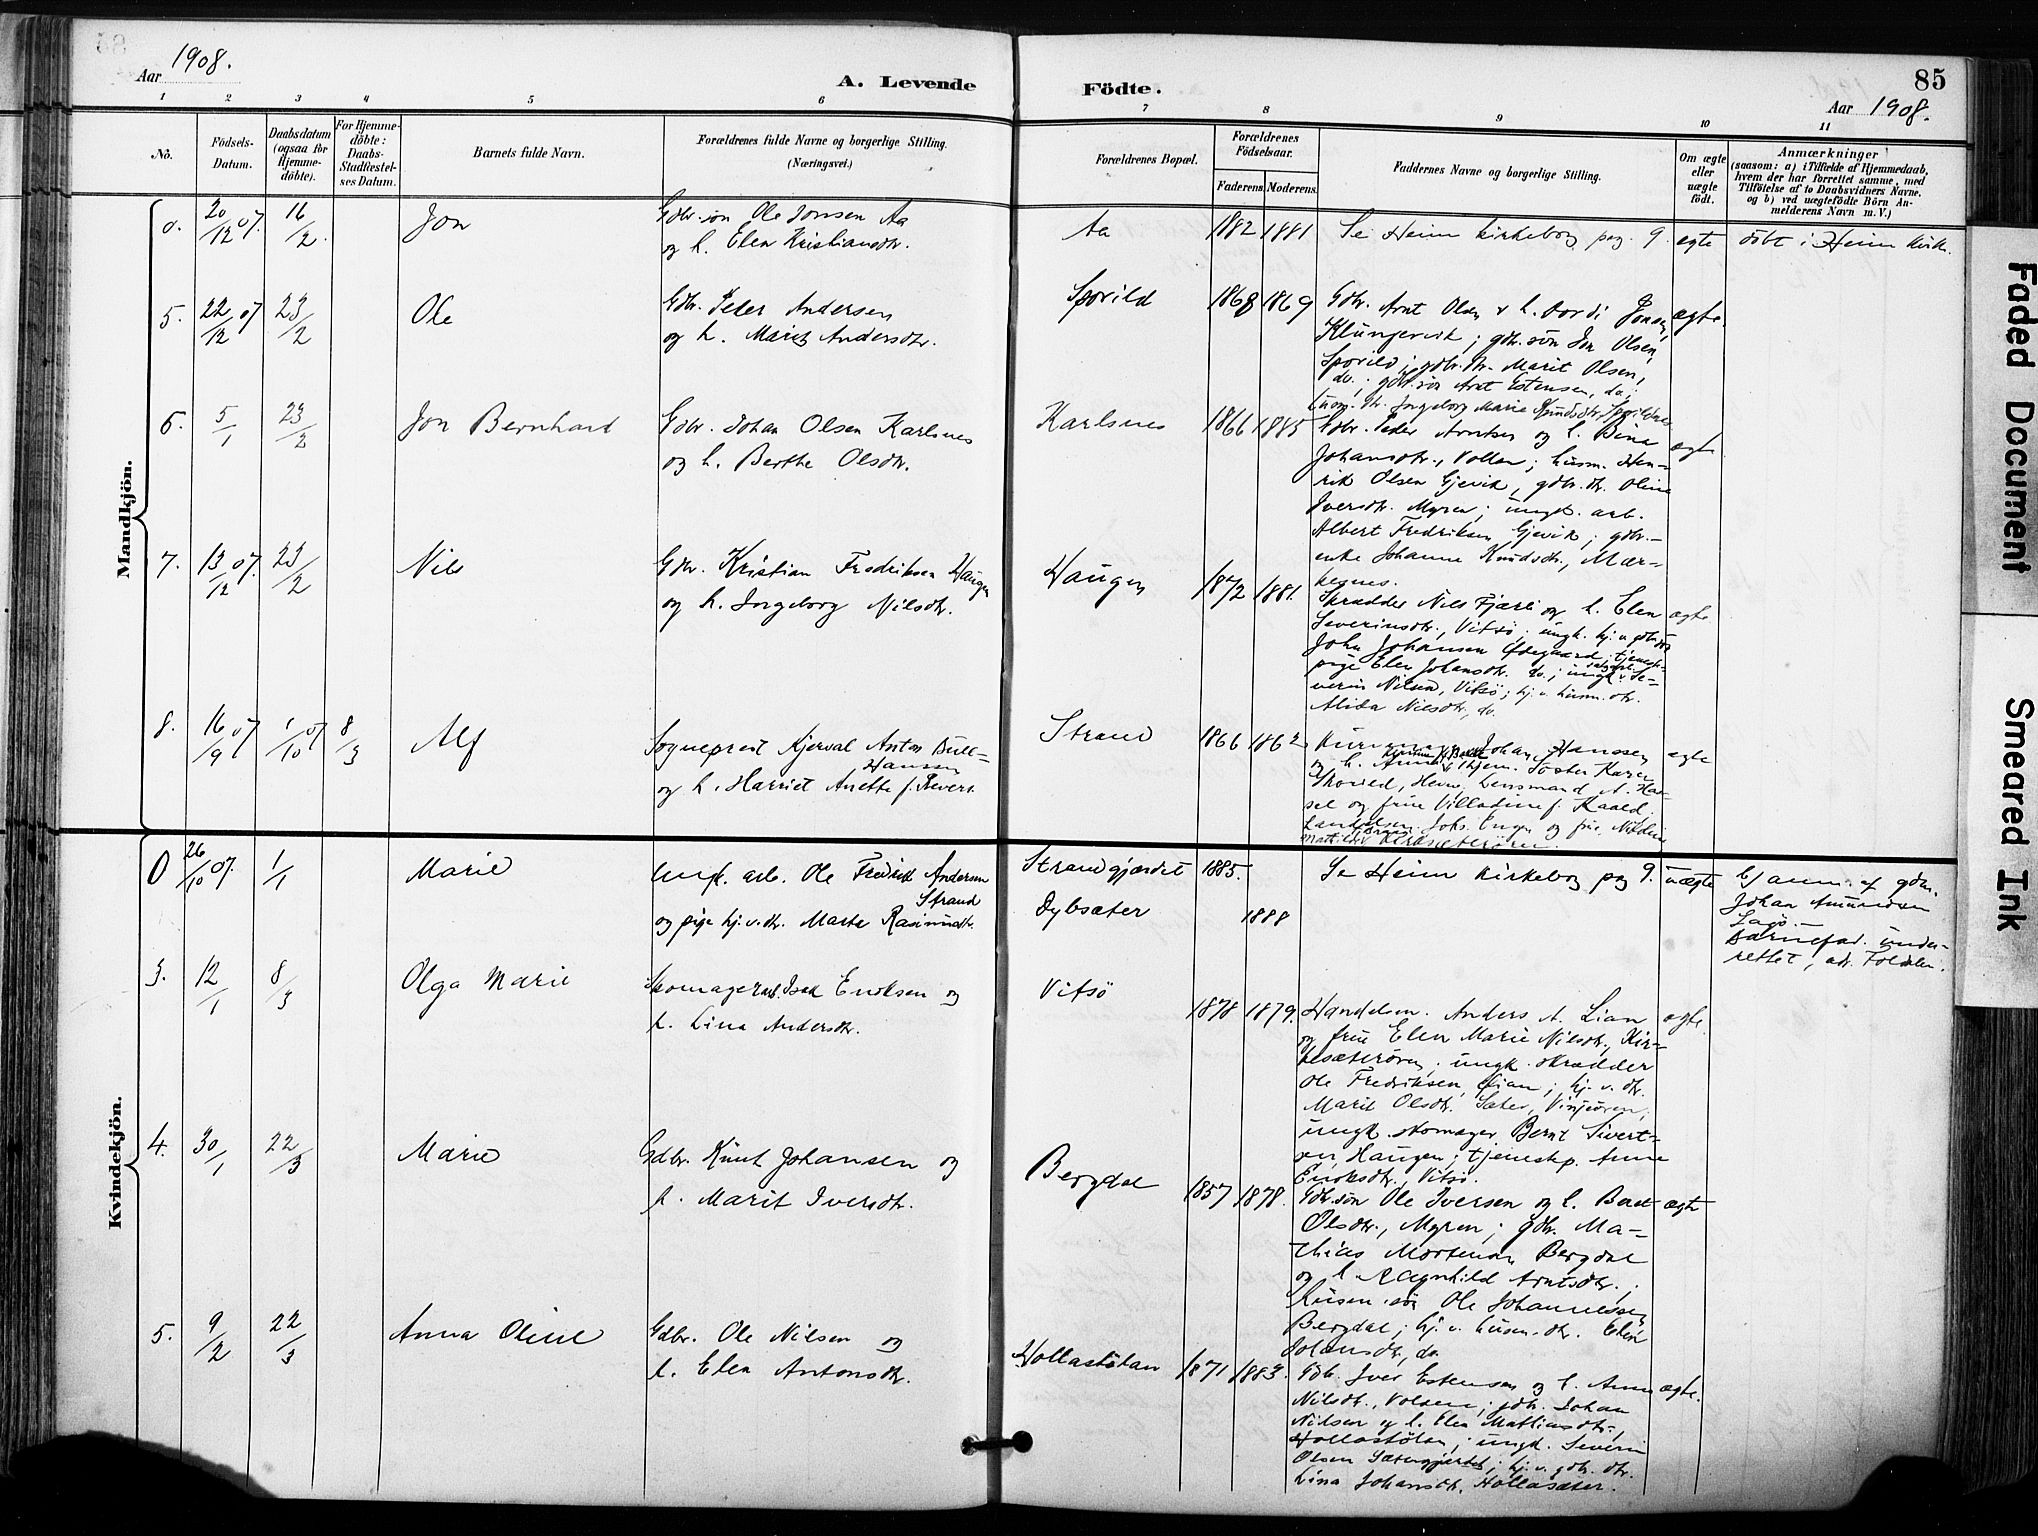 Aar 1908.
A. Levende
Födte.
85
Aar 1908.
1 2 3 4 5 6 7 8 9 10 11
No.
Födsels-Datum.
Daabsdatum (ogsaa for Hjemme-döbte).
For Hjemme-döbte: Daabs-Stadfæstel-ses Datum.
Barnets fulde Navn.
Forældrenes fulde Navne og borgerlige Stilling.
(Næringsvei.)
Forældrenes Bopæl.
Forældrenes Födselsaar.
Faderens. Moderens.
Faddernes Navne og borgerlige Stilling.
Om ægte eller uægte födt.
Anmærkninger
(saasom: a) i Tilfælde af Hjemmedaab, hvem der har forrettet samme, med Tilföielse af to Daabsvidners Navne, og b) ved uægtefödte Börn An-melderens Navn m. V.)
Mandkjön.
0. 20/12 07. 16/2 Jon
Gdbr. sön Ole Jonsen Aa
og h. Elen Kristiansdtr.
Aa 1882 1881 Se Heim Kirkebog pag. 9. ægte döbt i Heim Kirke.
5. 22/12 07 23/2 Ole
Gdbr. Peder Andersen
og h. Marit Andersdtr.
Sporild 1868 1869
Gdbr. Arnt Olsen & h. Jonsen, ægte.
Klungervik; gdbr. sön Jon Olsen
Sporild; gdbr. dtr. Marit Olsen,
do.; gdbr. sön Arnt Estensen, do.;
Ingeborg Marie Knudsdtr.
6. 5/1 23/2 Jon Bernhard
Gdbr. Johan Olsen Karlsnes
og h. Berthe Olsdtr.
Karlsnes 1866 1885
Gdbr. Peder Arntsen og h. Bina ægte
Johansdtr., Vollen; husm. Hen-
rik Olsen Gjevik, gdbr. dtr. Oline
Iversdtr. Myren; ungk. arb.
Albert Fredriksen Gjevik; gdbr.-
enke Johanne Knudsdtr., Mær-
kesnes.
7. 13/12 07. 23/2 Nils
Gdbr. Kristian Fredriksen Haugen
og h. Ingeborg Nilsdtr.
Haugen 1872 1881.
Skrædder Nils Fjære og h. Elen ægte
Severinsdtr., Vitsö; ungk. hj. v. gdbr. sön
John Johansen Ödegaard; tjeneste-
pige Elen Johansdtr. do.; ungk. Se-
verin Nilsen, Vitsö; hj. v. husm. dtr.
Alida Nilsdtr., do.
8. 16/9 07 1/10 07 8/3 Alf
Sogneprest Kjerval Anton Bull-
Hanssen
og h. Harriet Anette f. Sievers.
Strand 1866 1862
Johan Hanssen ægte
og h. Söster Karen
Skovild, Hevne, Lensmand A. Has-
sel og frue Villadine f. Kaald,
Joh. Engen og frue Nikoline
Mathilde Kirksæterören.
Kvindekjön.
0 26/10 07. 1/1 Marie
Ungk. arb. Ole Fredrik Andersen
Strand
og pige hj. v. dtr. Marta Rasmusdtr.
Strandgjærdet 1885.
Dybsæter 1888
Se Heim Kirkebog pag 9. uægte
Johan Amundsen
Barnefad. under-
rettet, adr. Foldalen.
3. 12/1 8/3 Olga Marie
Skomagerarb. Isak Eriksen og
h. Lina Andersdtr.
Vitsö
1878 1879.
Handelsm. Anders A. Lian ægte.
og frue Elen Marie Nilsdtr., Kir-
kesæterören; ungk. skrædder
Ole Fredriksen Lian; hj. v. dtr.
Marit Olsdtr. Sæter, Vinjeören;
ungk. skomager Bernt Sivert-
sen, Haugen; tjenestep. Anne
Eriksdtr., Vitsö.
4. 30/1 22/3 Marie
Gdbr. Knut Johansen og
h. Marit Iversdtr.
Bergdal 1857 1878.
Gdbr. sön Ole Iversen og h. Beret ægte
Olsdtr., Myren; gdbr. Ma-
thias Mortensen Bergdal
og h. Ragnhild Arntsdtr.;
husm. sön Ole Johannessen
Bergdal; hj. v. husm. dtr. Elen
Johansdtr., do.
5. 9/2 22/3 Anna Oline
Gdbr. Ole Nilsen og
h. Elen Antonsdtr.
Hollastölan 1871 1883.
Gdbr. Iver Estensen og h. Anne ægte.
Nilsdtr., Volden; gdbr. Johan
Nilsen og h. Elen Mathiasdtr.,
Hollastölan; ungk. Severin
Olsen Sætergjerdet; hj. v. gdbr. dtr.
Lina Johansdtr. Hollasæter.
Faded Document
Smeared Ink